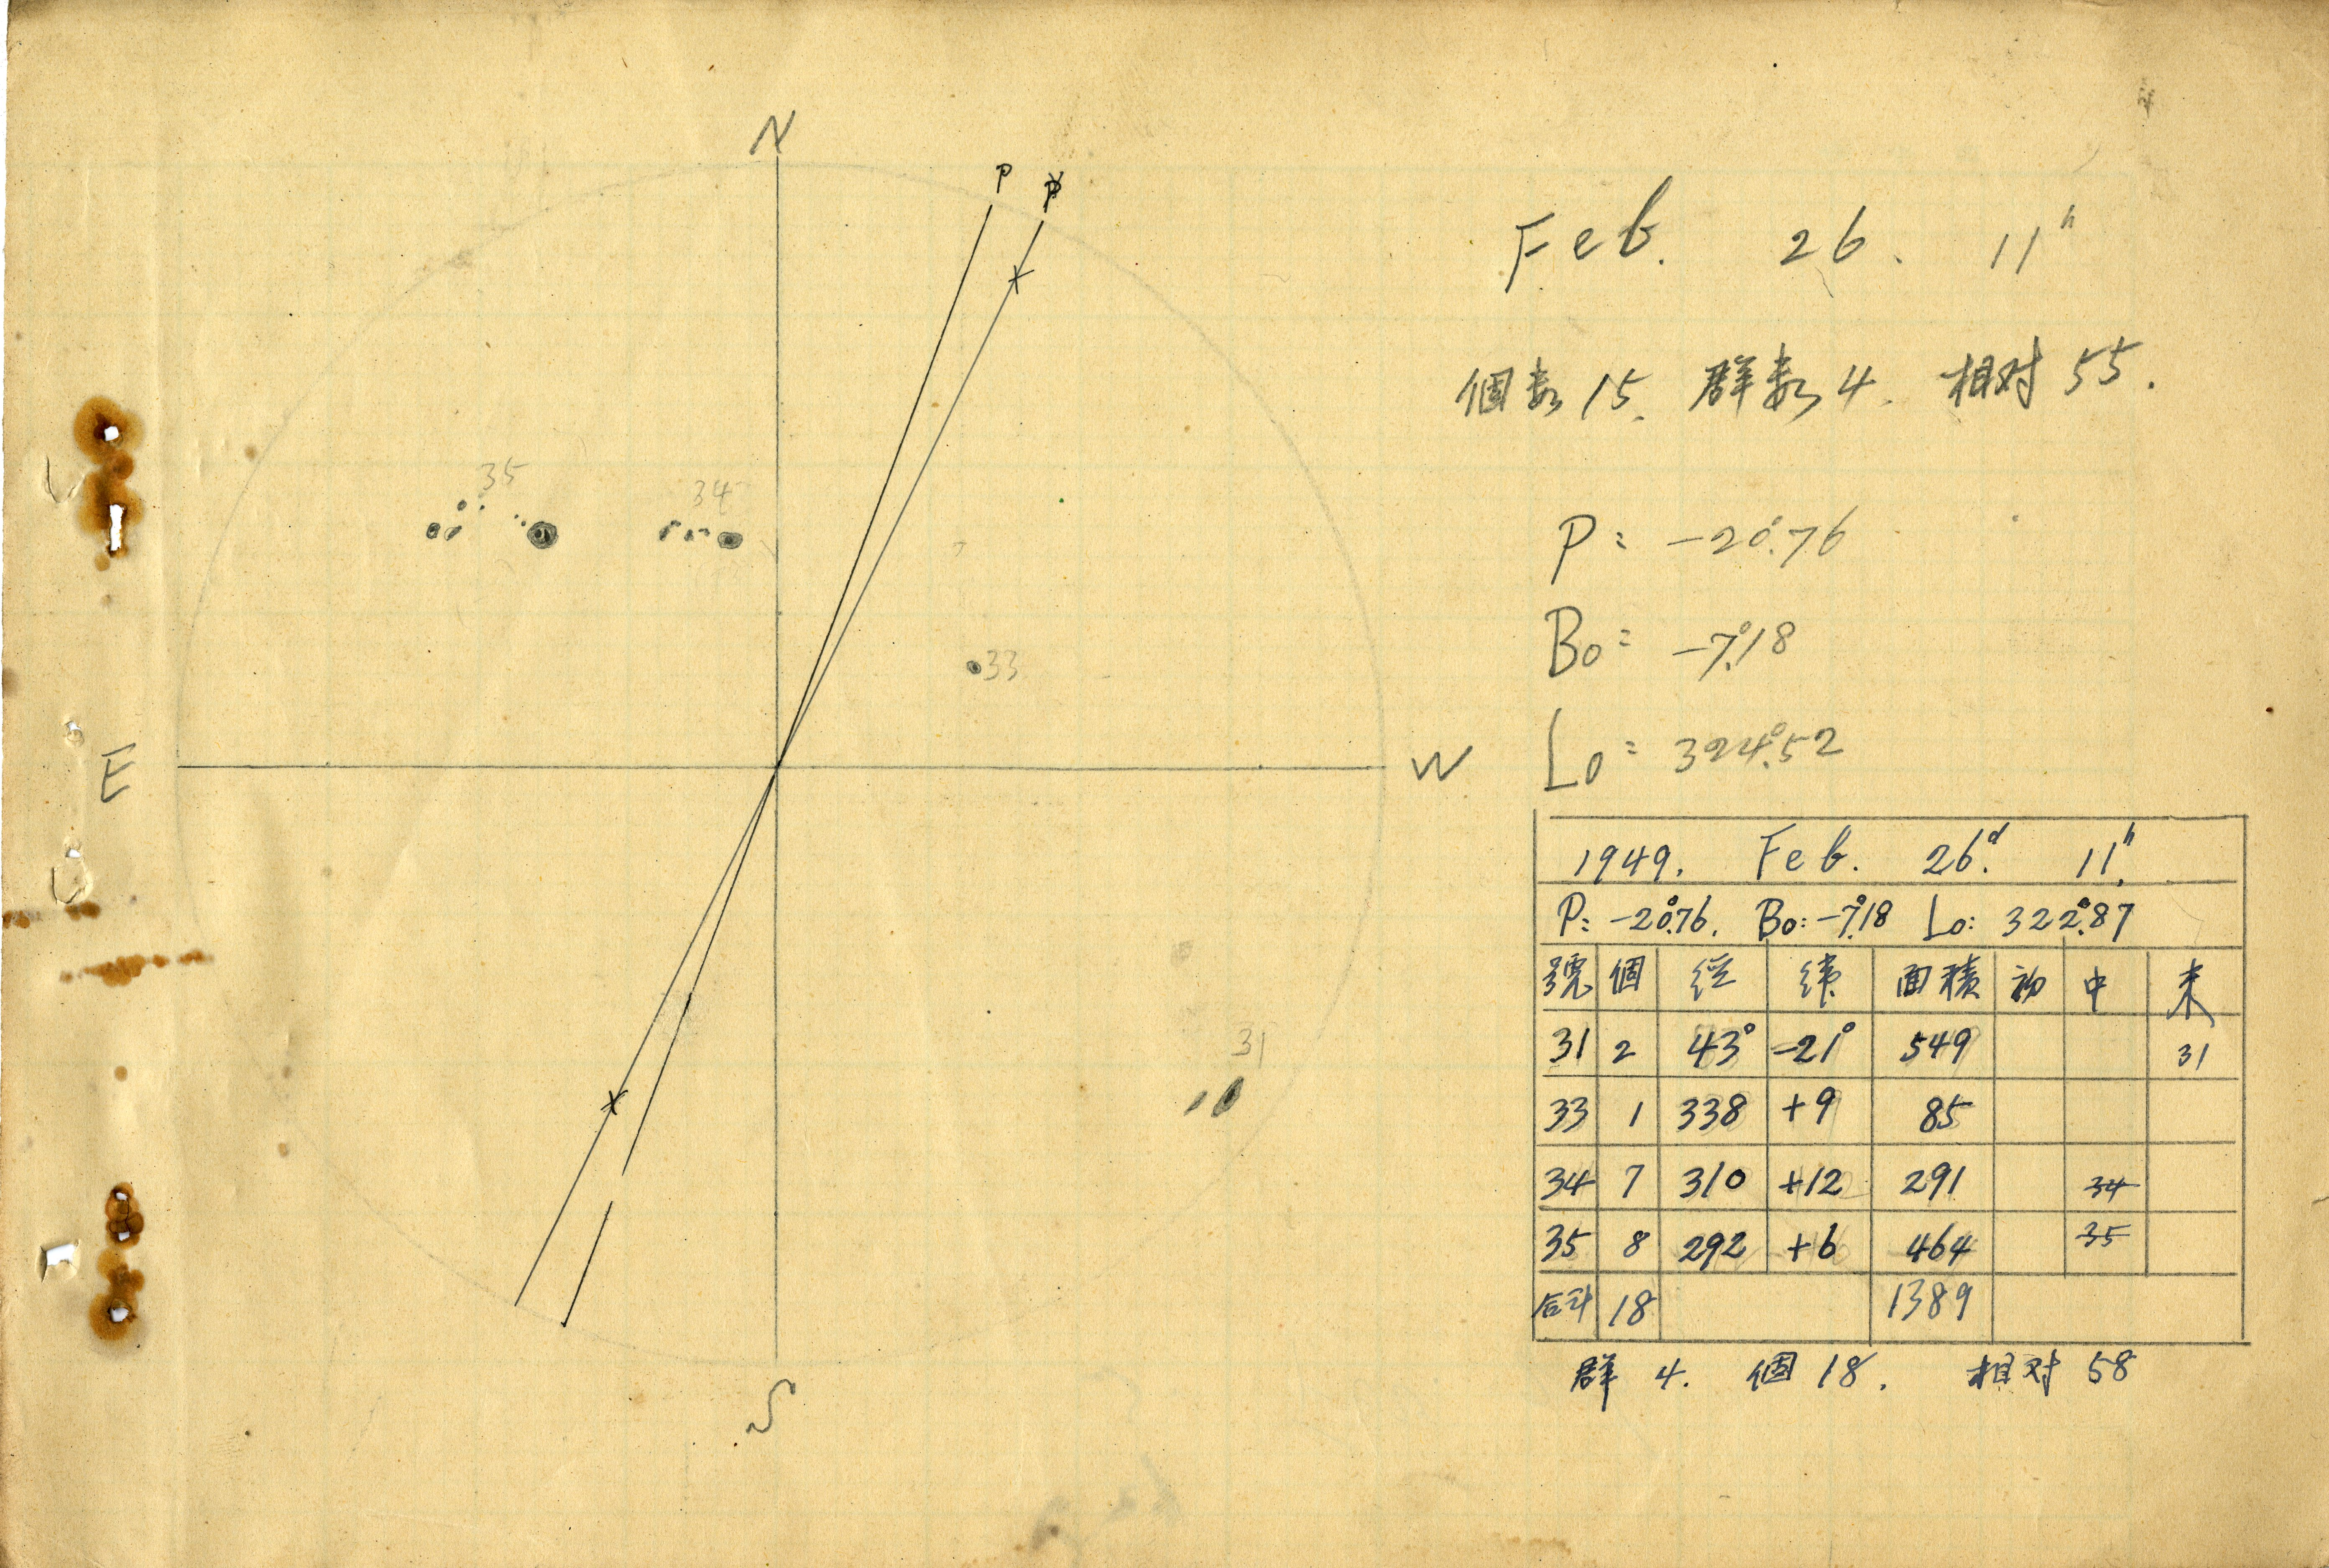 N
P
P
35
34
33
31
E
W
S
Feb. 26. 11h
個数 15. 群数 4. 相対 55.
P: -20°.76
Bo: -7°.18
Lo: 324°.52
1949. Feb. 26d. 11h.
P: -20°.76. Bo: -7°.18 Lo: 322°.87
號 個 経 緯 面積 初 中 末
31 2 43° -21° 549 31
33 1 338 +9 85
34 7 310 +12 291 34
35 8 292 +6 464 35
合計 18 1389
群 4. 個 18. 相対 58